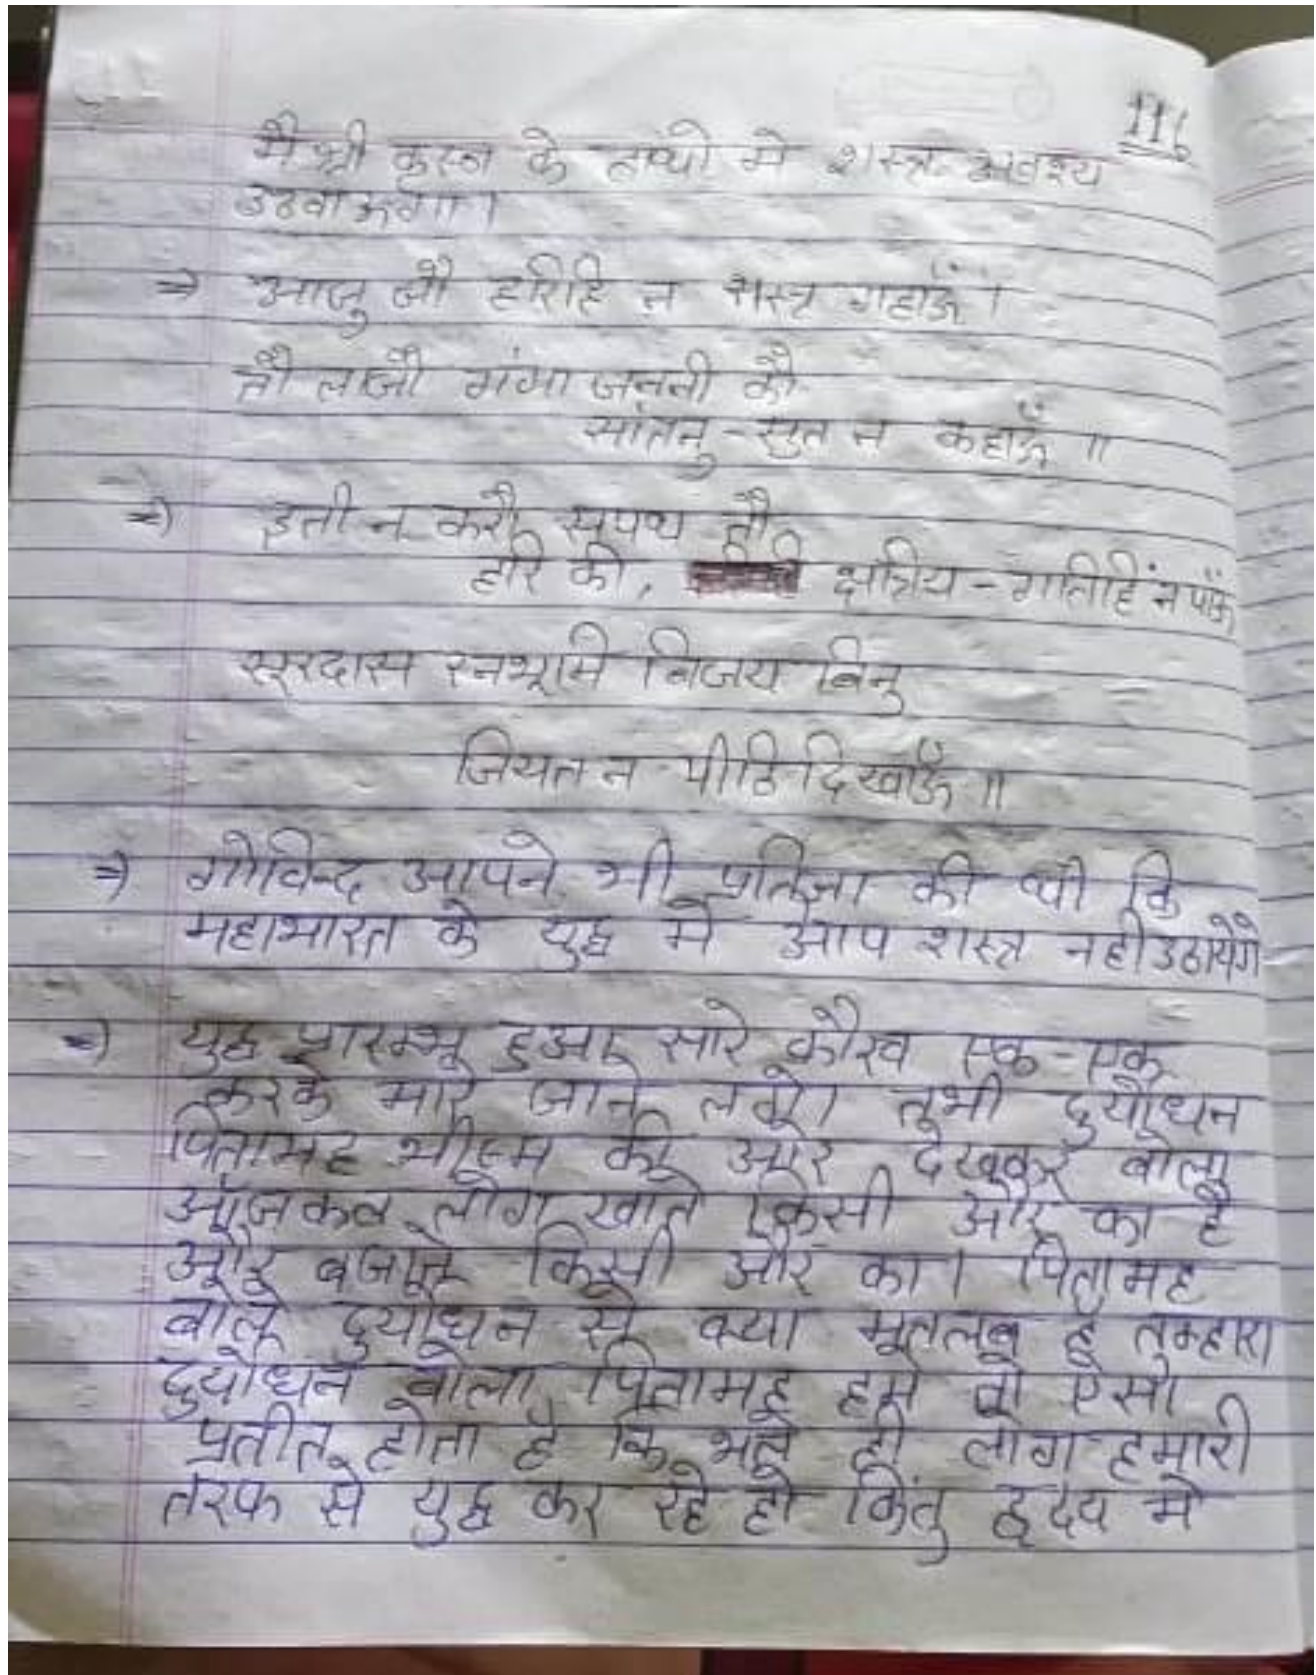 116
मै श्री कृस्ण के हाथो मे शस्त्र अवश्य
उठवाऊगा।
⇒ आजु जौ हरिहि न शस्त्र गहाऊँ।
तौ लाजौ गंगा जननी कौ
सांतनु-सुत न कहाऊँ॥
⇒ इती न करौ सपथ तौ
हरि की, क्षत्रिय-गतिहिं न पाऊँ
सूरदास रनभूमि विजय बिनु
जियत न पीठि दिखाऊँ॥
⇒ गोविन्द आपने भी प्रतिज्ञा की थी कि
महाभारत के युद्ध मे आप शस्त्र नही उठायेगे
⇒ युद्ध प्रारम्भ हुआ सारे कौरव एक-एक
करके मारे जाने लगे। तभी दुर्योधन
पितामह भीस्म की ओर देखकर बोला
आजकल लोग खाते किसी और का है
और बजाते किसी और का। पितामह
बोले दुर्योधन से क्या मतलब है तुम्हारा
दुर्योधन बोला पितामह हमे तो ऐसा
प्रतीत होता है कि भले ही लोग हमारी
तरफ से युद्ध कर रहे हो किंतु हृदय मे